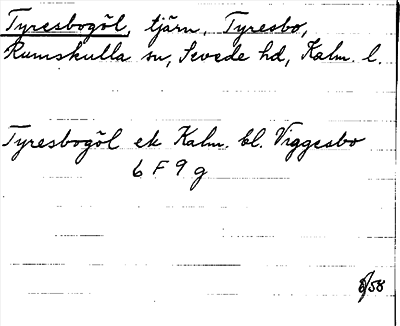 Tyresbogöl, tjärn, Tyresbo,
Rumskulla sn, Sevede hd, Kalm. l.
Tyresbogöl ek Kalm. bl. Viggesbo
6 F 9 g
/58